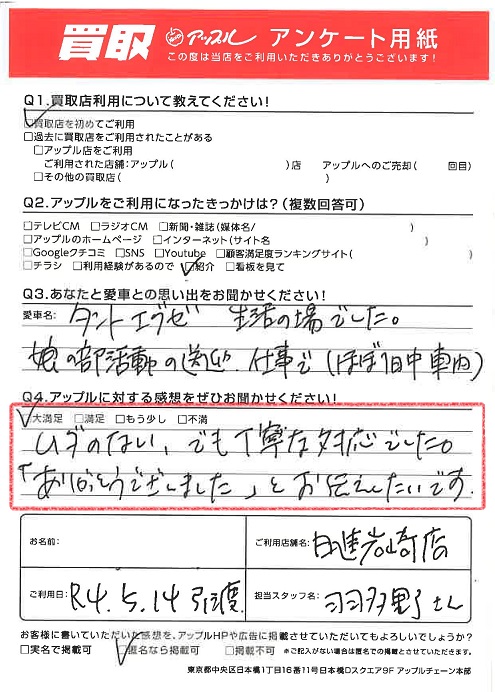 買取 アップル アンケート用紙
この度は当店をご利用いただきありがとうございます!
Q1.買取店利用について教えてください!
☑買取店を初めてご利用
□過去に買取店をご利用されたことがある
□アップル店をご利用
ご利用された店舗:アップル( )店 アップルへのご売却( 回目)
□その他の買取店( )
Q2.アップルをご利用になったきっかけは?(複数回答可)
□テレビCM □ラジオCM □新聞・雑誌(媒体名/ )
□アップルのホームページ □インターネット(サイト名 )
□Googleクチコミ □SNS □Youtube □顧客満足度ランキングサイト( )
□チラシ □利用経験があるので ☑紹介 □看板を見て
Q3.あなたと愛車との思い出をお聞かせください!
愛車名: タントエグゼ 生活の場でした。
娘の部活動の送迎、仕事で(ほぼ1日中車内)
Q4.アップルに対する感想をぜひお聞かせください!
☑大満足 □満足 □もう少し □不満
ムダのない、でも丁寧な対応でした。
「ありがとうございました」とお伝えしたいです。
お名前: ご利用店舗名: 日進岩崎店
ご利用日: R4.5.14引渡 担当スタッフ名: 羽多野さん
お客様に書いていただいた感想を、アップルHPや広告に掲載させていただいてもよろしいでしょうか?
□実名で掲載可 ☑匿名なら掲載可 □掲載不可 ※ご記入がない場合は匿名での掲載とさせていただきます。
東京都中央区日本橋1丁目16番11号日本橋Dスクエア9F アップルチェーン本部